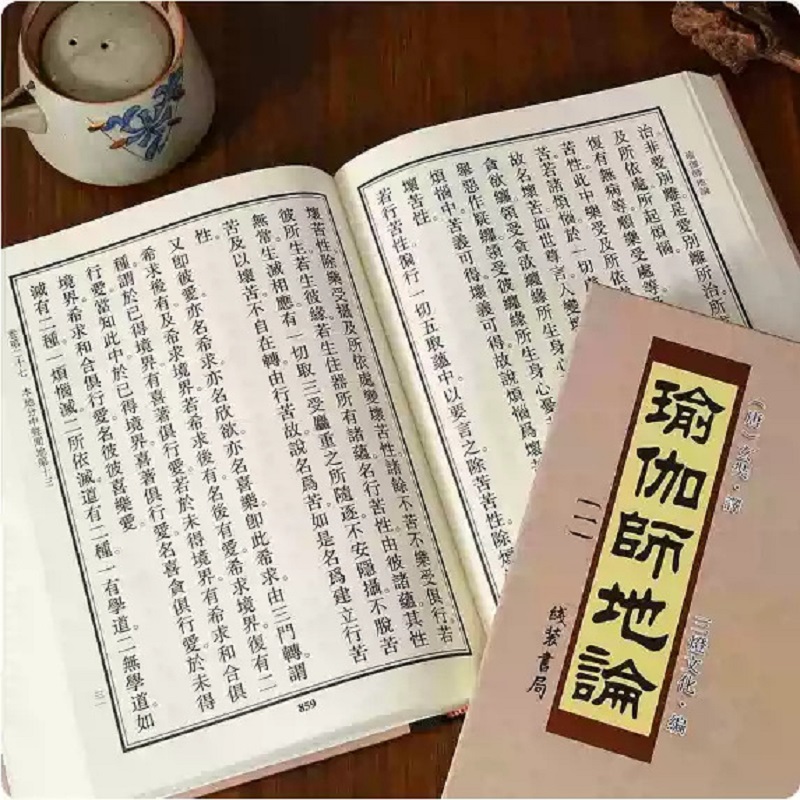 瑜伽師地論
治非愛別離是愛別離所治所
及所依處所起煩惱。
復有無病等順樂受處等
苦性此中樂受及所依
苦若諸煩惱於一切
故名壞苦如世尊言入變
貪欲纏領受貪欲纏緣所生身心憂
領受彼纏緣所生身心
煩惱中苦義可得壞義可得故說煩惱爲壞
壞苦性。
若行苦性徧行一切五取蘊中以要言之除苦苦性除
壞苦性除樂受攝及所依處變壞苦性諸餘不苦不樂受俱行若
彼所生若生彼緣若生住器所有諸蘊名行苦性。由彼諸蘊其性
無常生滅相應有一切取三受麤重之所隨逐不安隱攝不脫苦
苦及以壞苦不自在轉由行苦故說名爲苦。如是名爲建立行苦
性。
又卽彼愛亦名希求亦名欣欲亦名喜樂。卽此希求由三門轉。謂
希求後有及希求境界。若希求後有名後有愛。希求境界復有二
種。謂於已得境界有喜著俱行愛。若於未得境界有希求和合俱
行愛。當知此中於已得境界喜著俱行愛名喜貪俱行愛。於未得
境界。希求和合俱行愛名彼彼喜樂愛
滅有二種。一煩惱滅。二所依滅。道有二種。一有學道。二無學道。如
卷第二十七 本地分中聲聞地第十三
三一
859
(唐)玄奘·譯
三燈文化·編
瑜伽師地論
(二)
线装書局